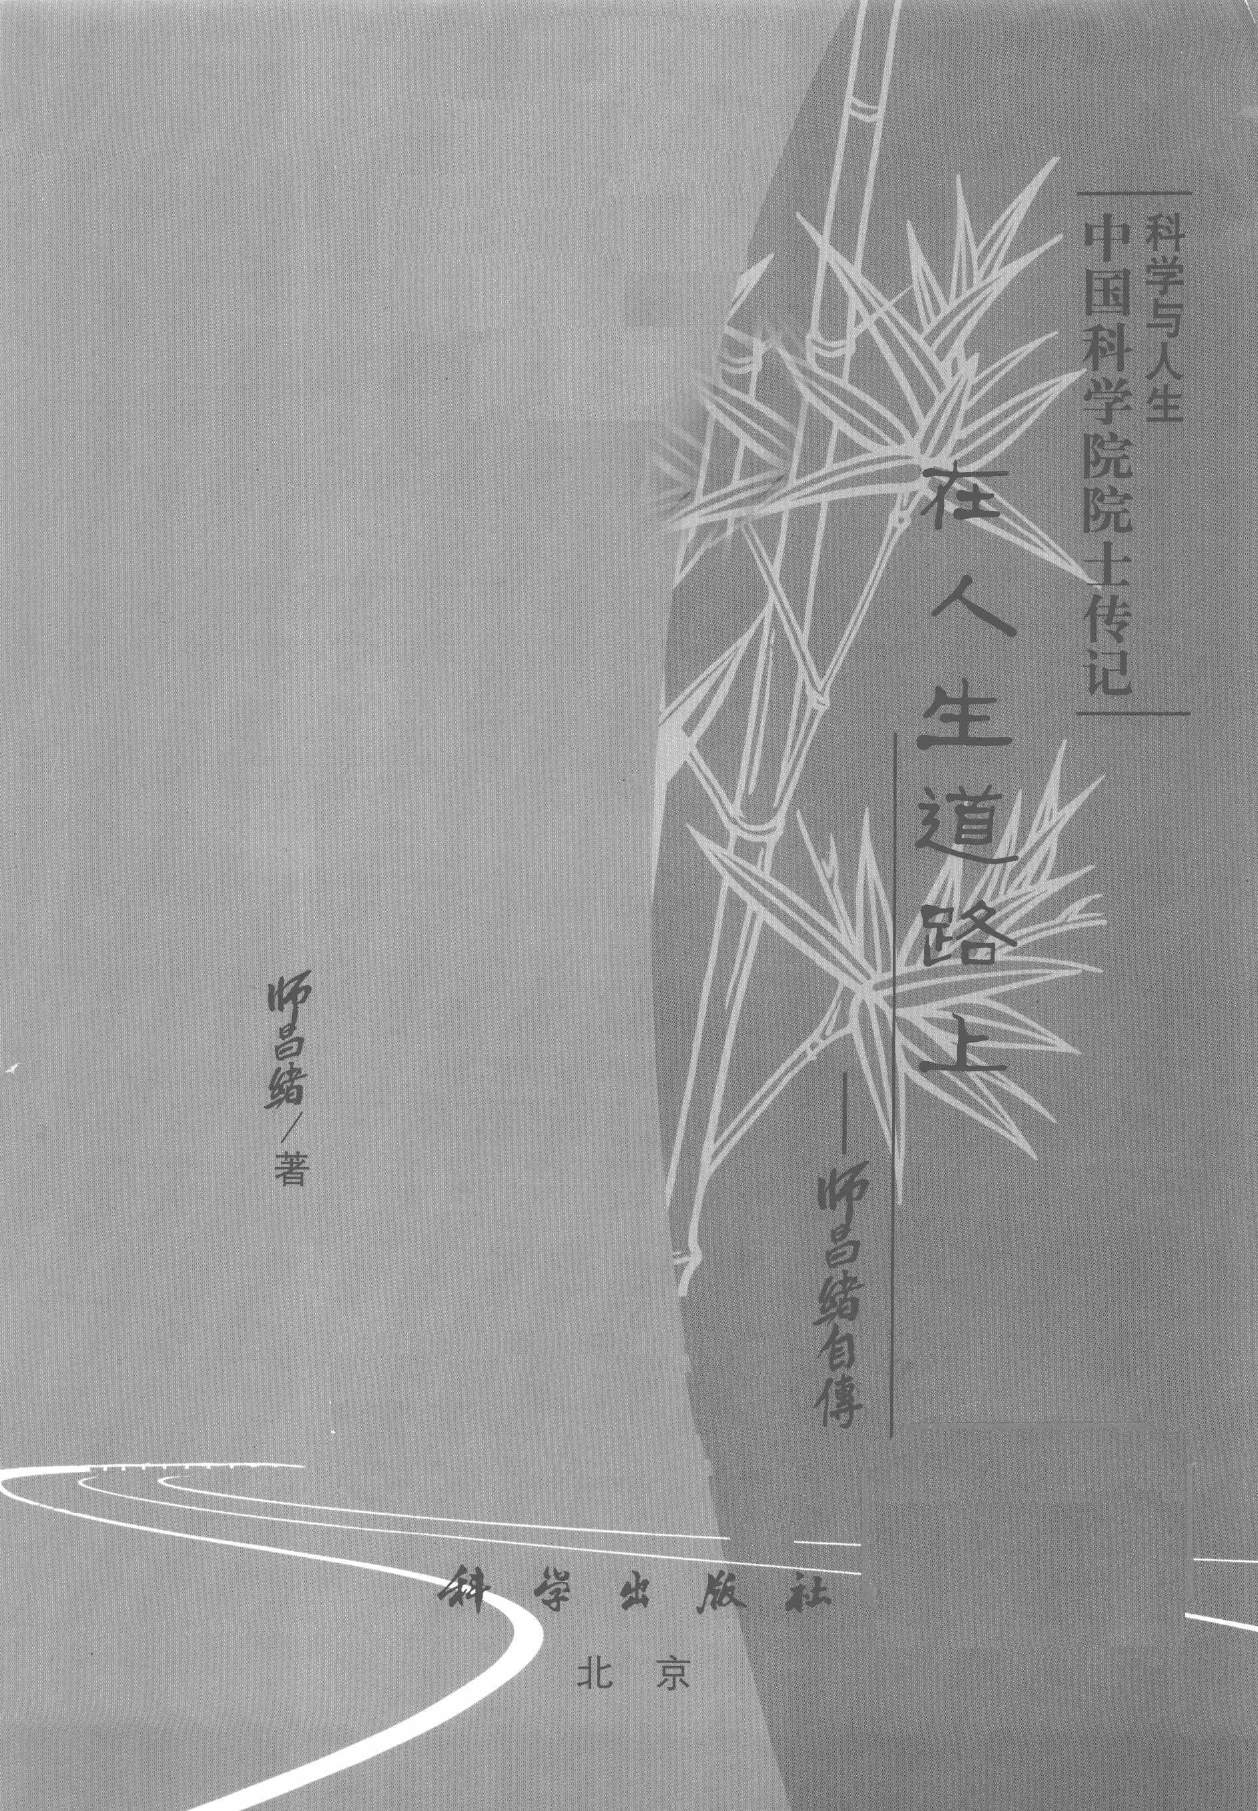 科学与人生
中国科学院院士传记
在人生道路上
——师昌绪自傳
师昌绪/著
科学出版社
北京